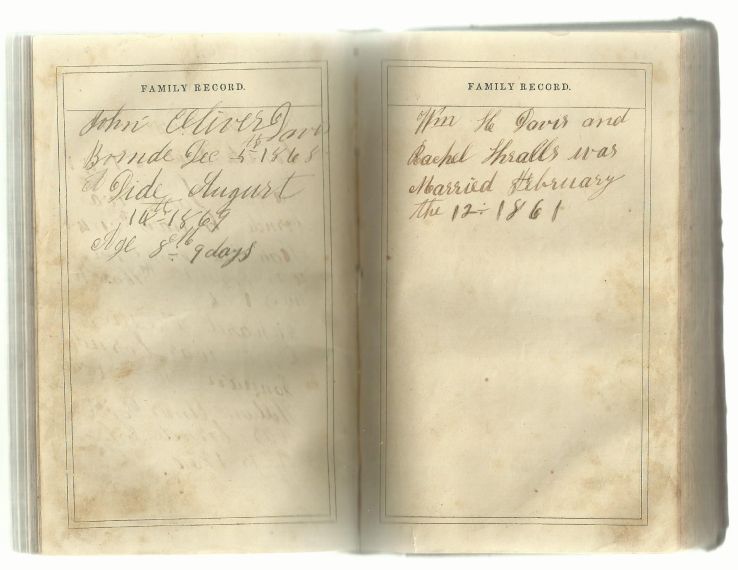 FAMILY RECORD.
John Oliver Davis
Bornde Dec 5th 1868
Dide August
14th 1869
Age 8 9 days
FAMILY RECORD.
Wm H Davis and
Rachel Thralls was
Married February
the 12 1861